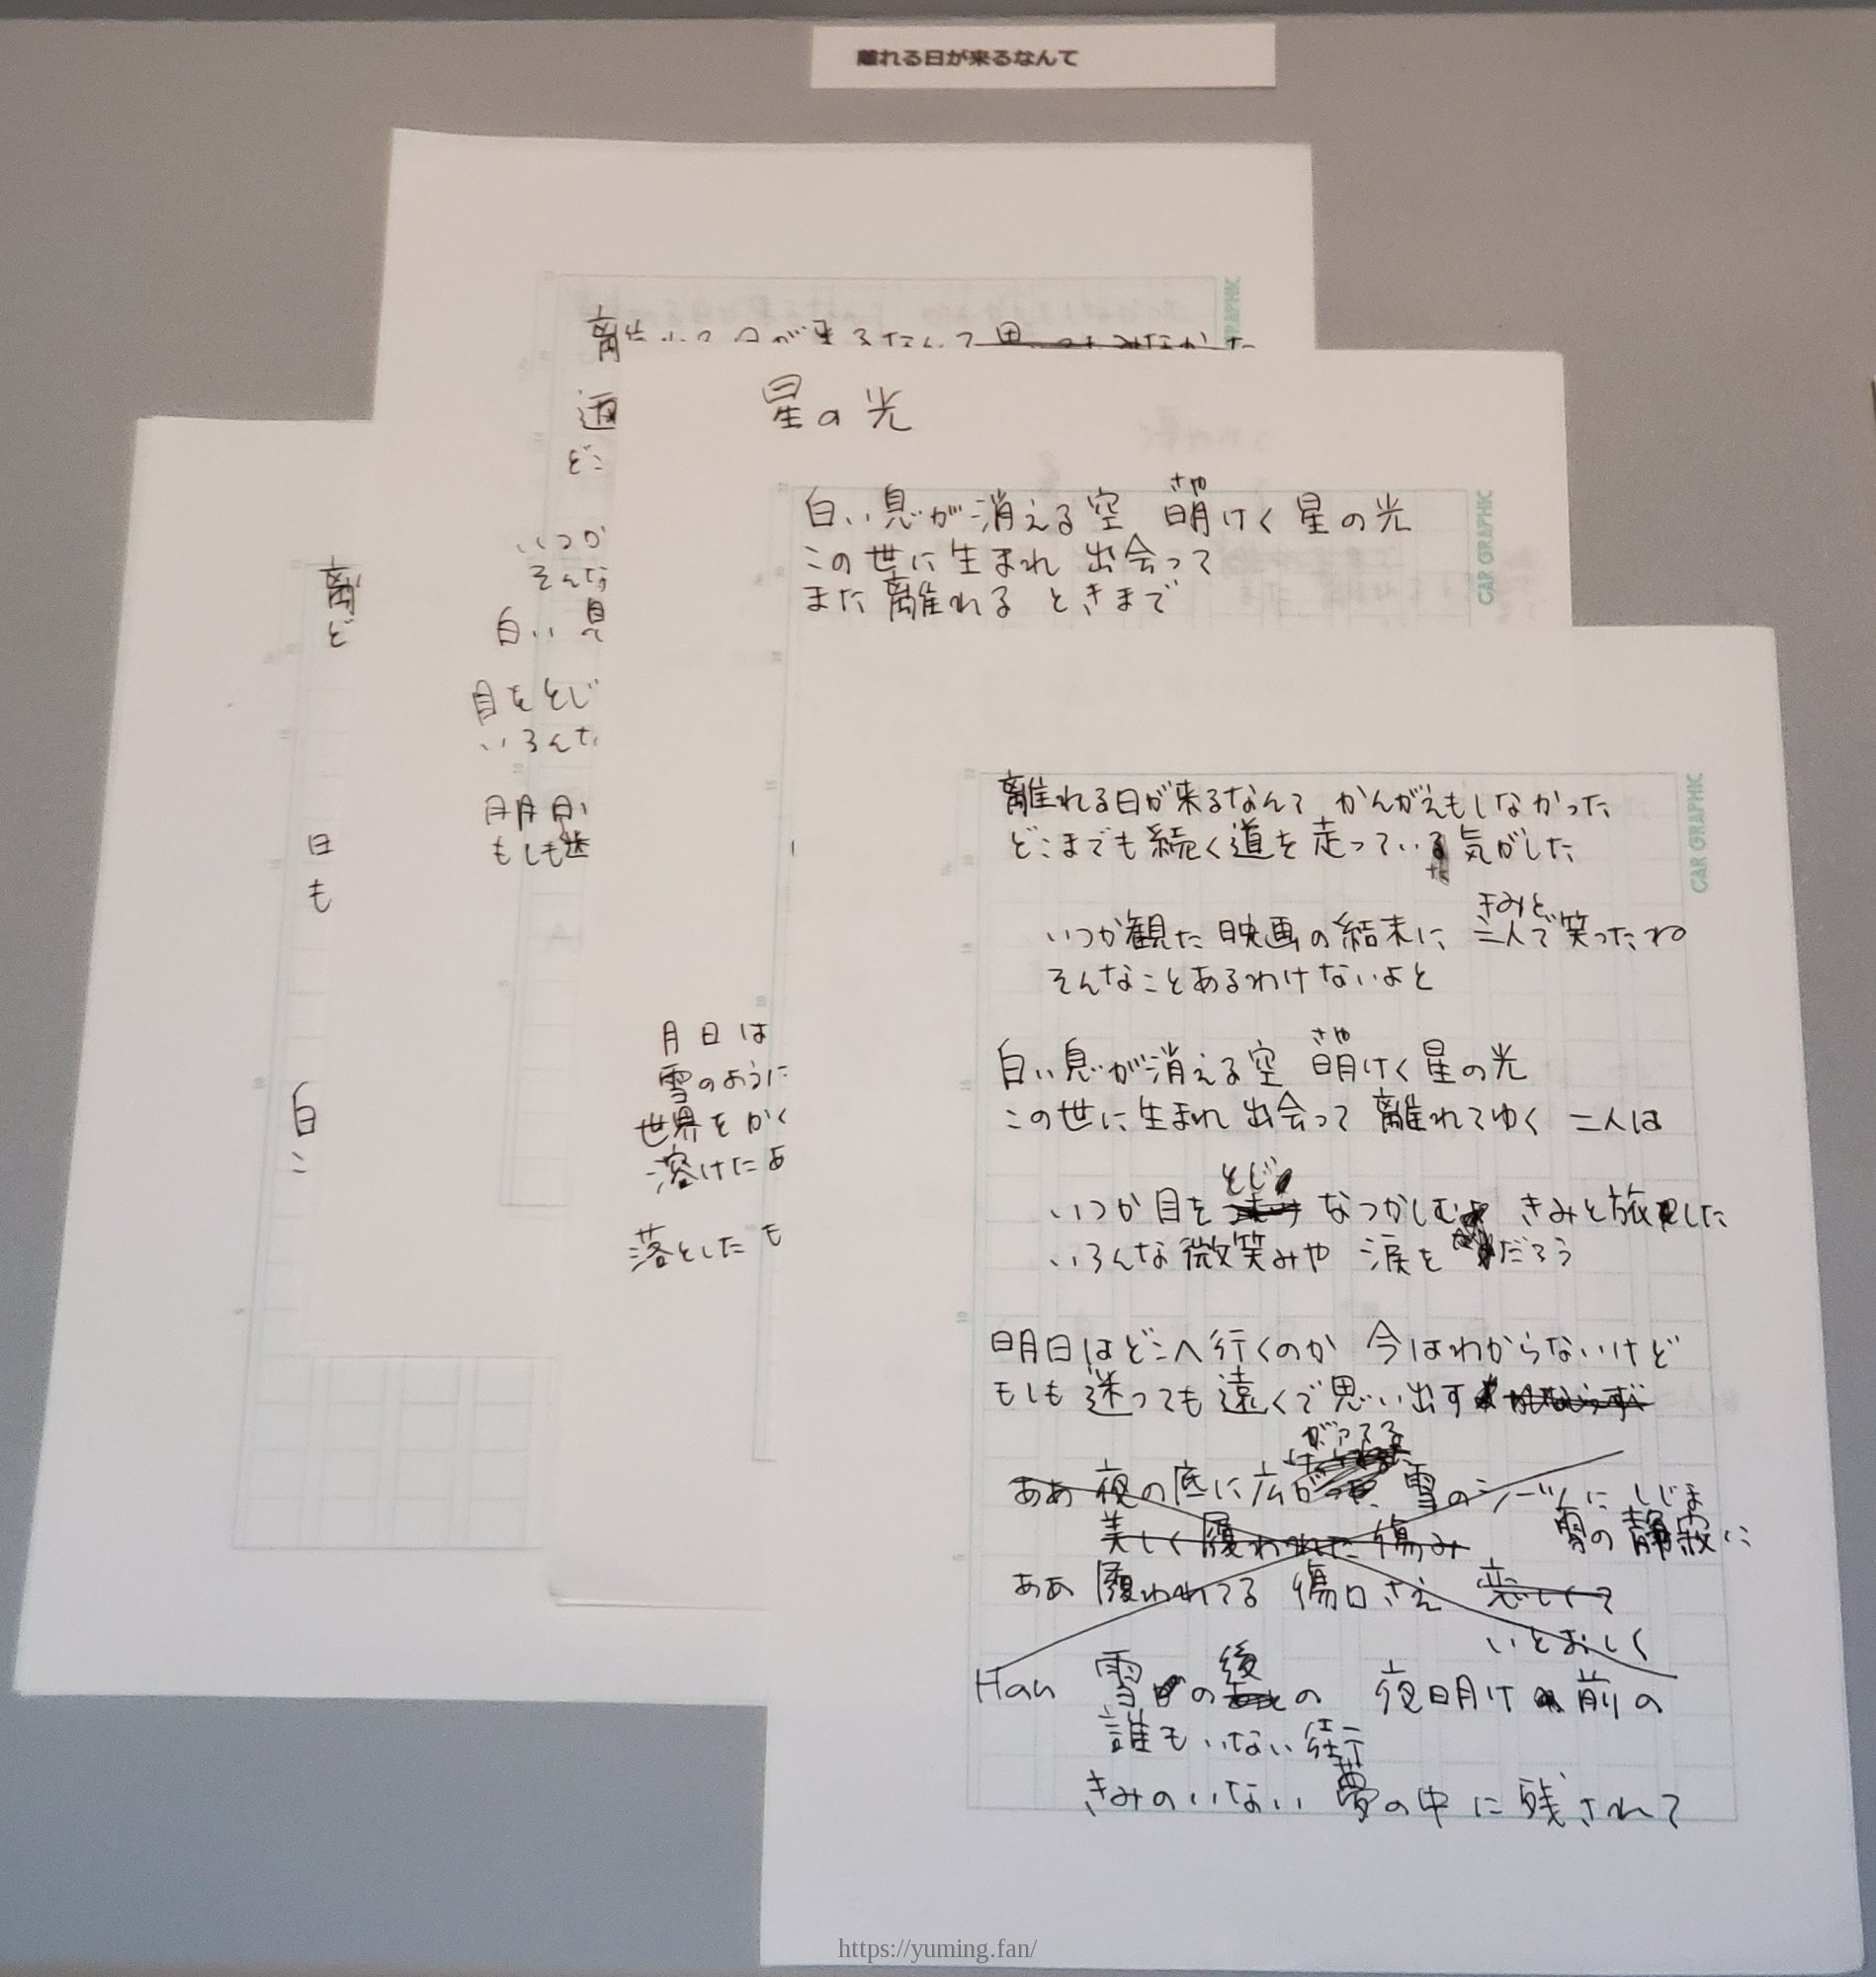 離れる日が来るなんて
離れる日が来るなんて思ってもみなかった
どこ
いつか
そんな
白い息
目をとじ
いろんな
明日
もしも迷
離
ど
日
も
白
こ
星の光
さや
白い息が消える空 萌けく星の光
この世に生まれ 出会って
また離れる ときまで
月日は
雪のように
世界をかく
溶けたあ
落としたも
離れる日が来るなんて かんがえもしなかった
どこまでも続く道を走っている気がした
た
きみと
いつか観た映画の結末に 二人で笑ったね
そんなことあるわけないよと
さや
白い息が消える空 萌けく星の光
この世に生まれ 出会って 離れてゆく 二人は
とじ
いつか目を なつかしむ きみと旅した
いろんな微笑みや 涙を だろう
明日はどこへ行くのか 今はわからないけど
もしも迷っても遠くで思い出す かならず
がってる
ああ 夜の底に広が 雪のシーツに しじま
美しく履われた傷み 雪の静寂に
ああ 履われてる 傷口さえ 悲しくて
いとおしく
後
Hau 雪の の 夜明け前の
誰もいない街
きみのいない夢の中に残されて
CAR GRAPHIC
CAR GRAPHIC
RAPHIC
https://yuming.fan/